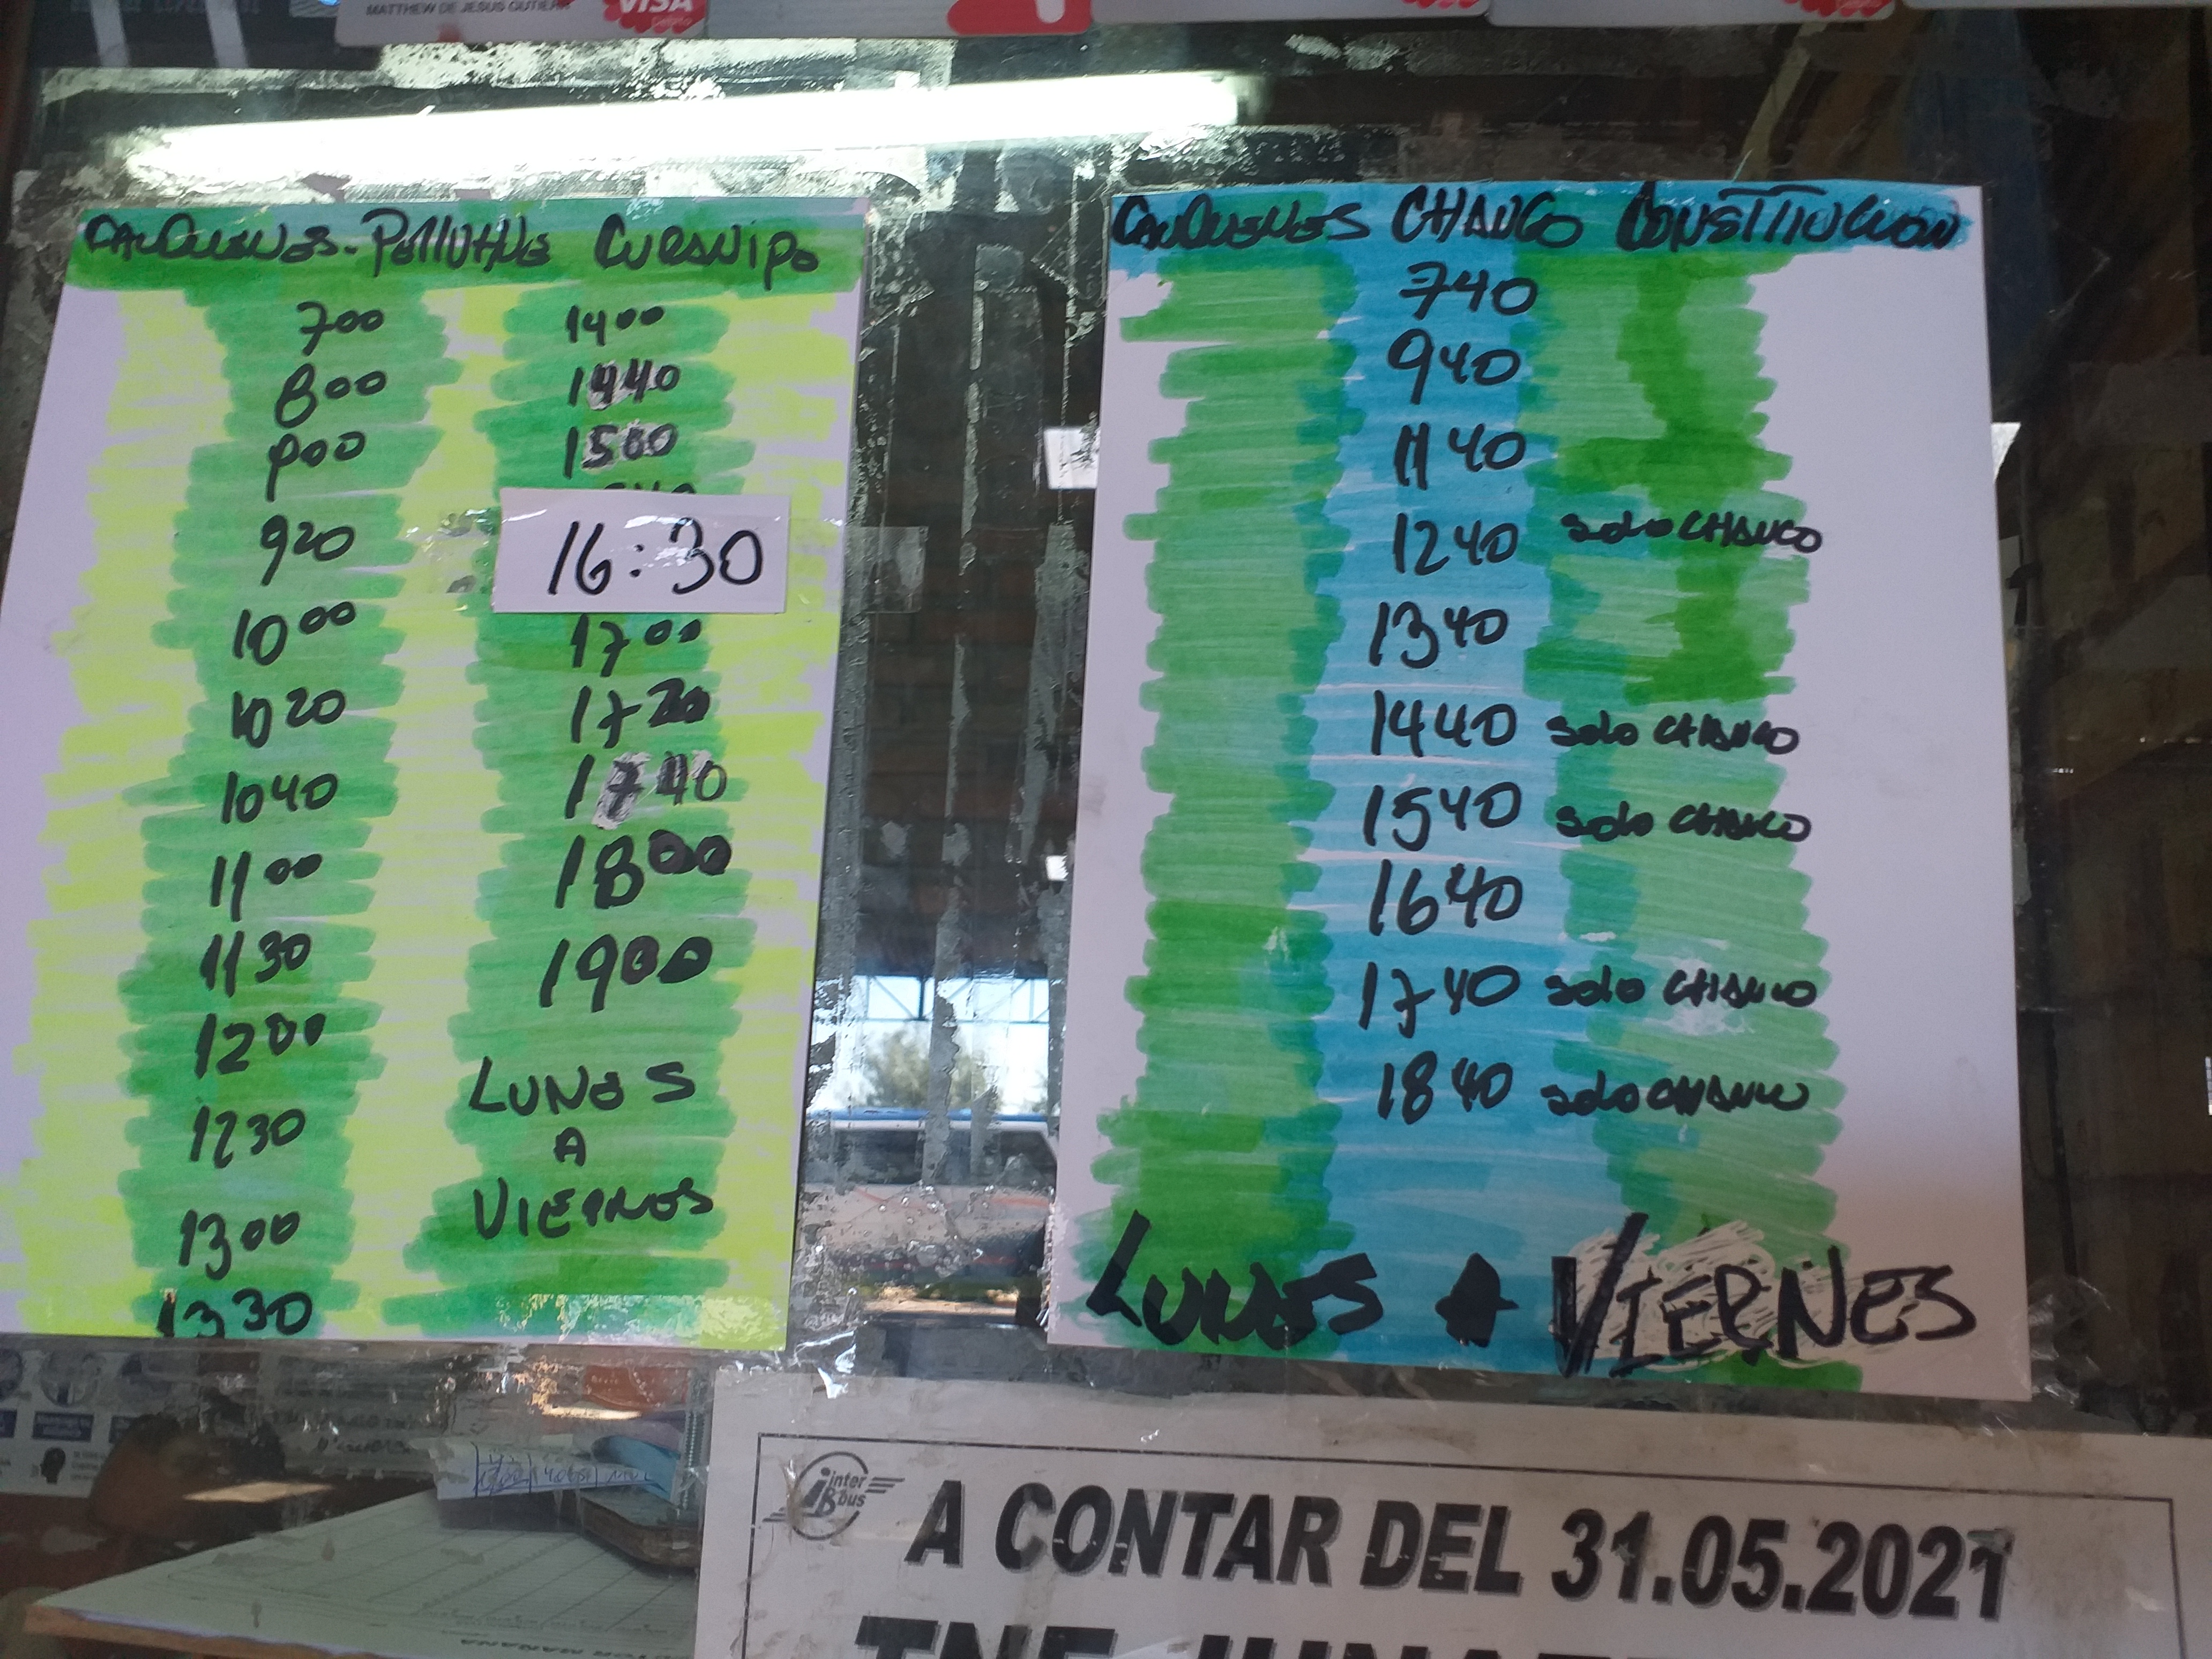 MATTHEW DE JESUS GUTIERR
VISA
Débito
CAUQUENES-PELLUHUE CURANIPE
700
800
900
920
1000
1020
1040
1100
1130
1200
1230
1300
1330
1400
1440
1500
16:30
1700
1720
1740
1800
1900
LUNES
A
VIERNES
CAUQUENES CHANCO CONSTITUCION
740
940
1140
1240 solo CHANCO
1340
1440 solo CHANCO
1540 solo CHANCO
1640
1740 solo CHANCO
1840 solo CHANCO
LUNES A VIERNES
inter
Bus
A CONTAR DEL 31.05.2021
TNE